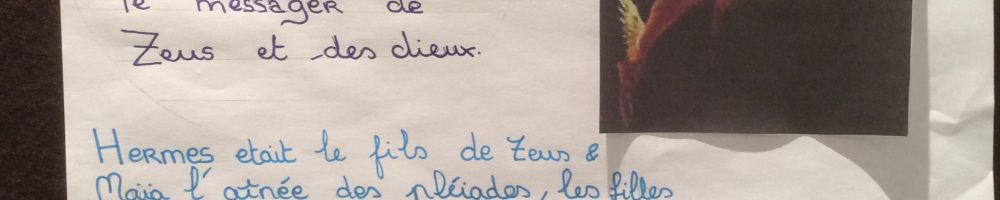 le messager de
Zeus et des dieux.
Hermes etait le fils de Zeus &
Maïa l'atnée des pléiades, les filles